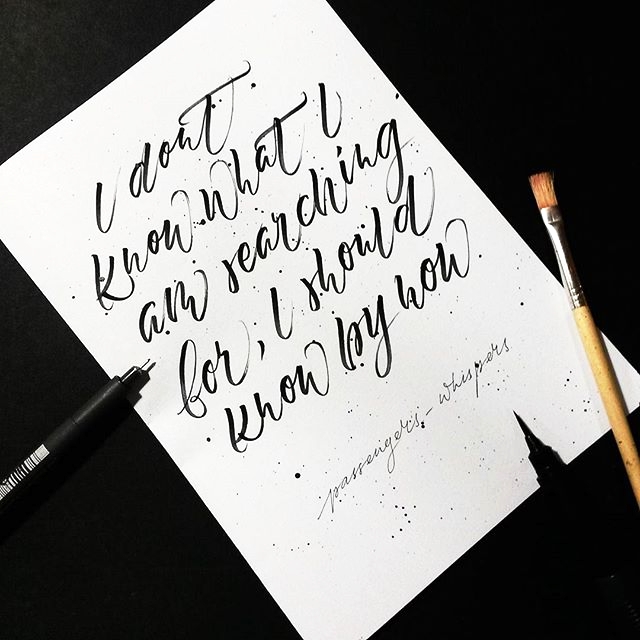 I dont
know what I
am searching
for, I should
know by now
passenger's - whispers